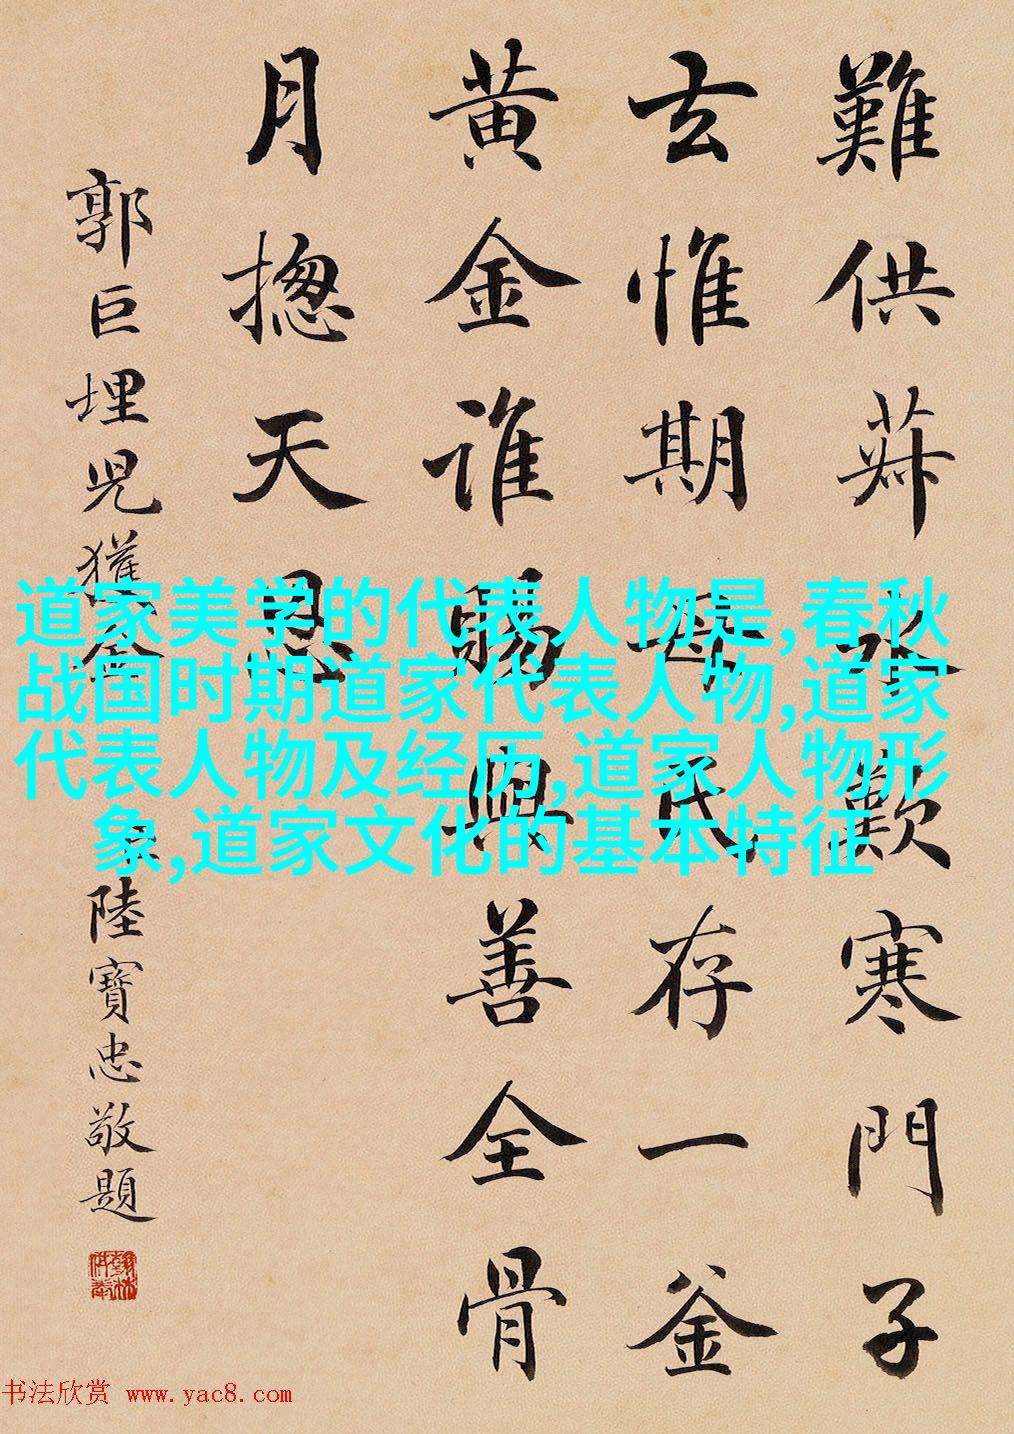 難供菽水歎寒門子
玄惟期母氏存一釜
黄金谁賜與善全骨
月揔天恩
郭巨埋児獲金
陸寶忠敬題
道家美学的代表人物是,春秋
战国时期道家代表人物,道家
代表人物及经历,道家人物形
象,道家文化的基本特征
书法欣赏 www.yac8.com